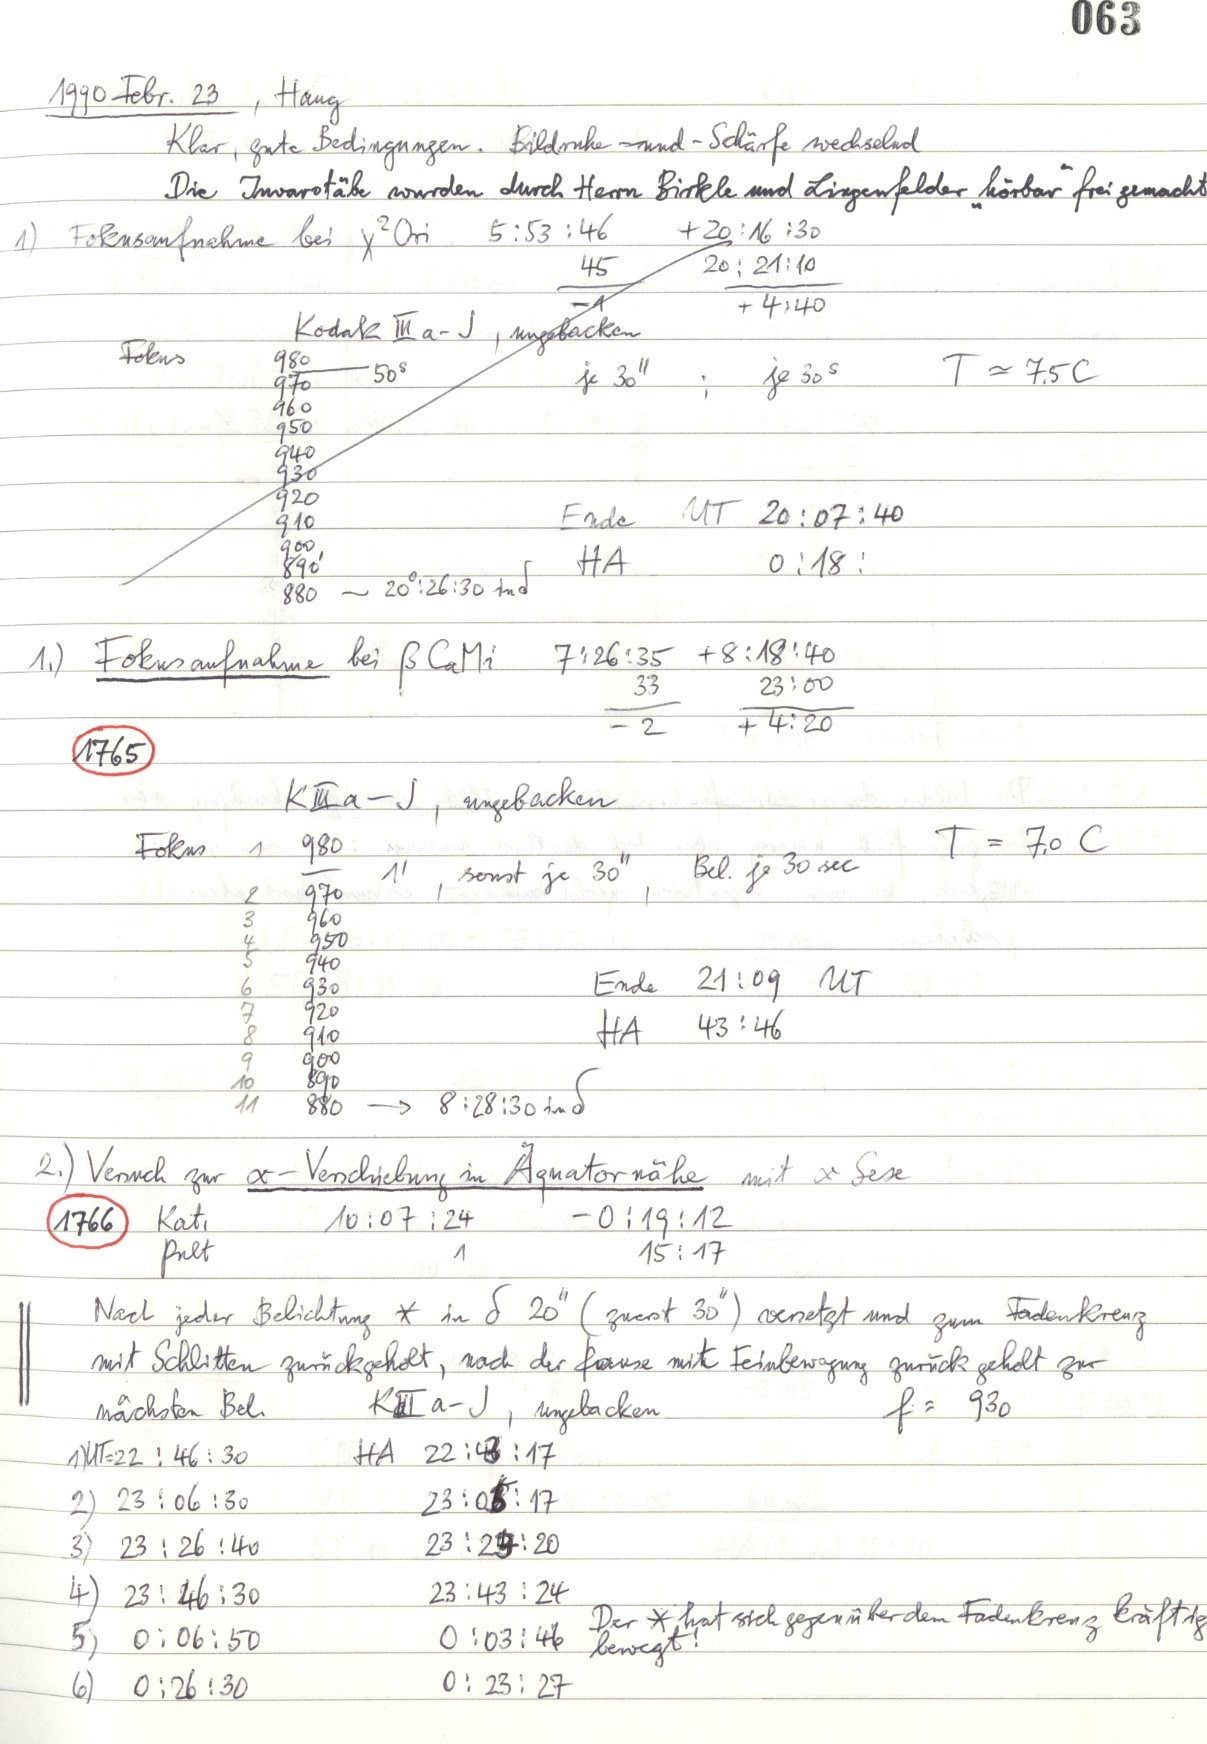 063
1990 Febr. 23, Haug
Klar, gute Bedingungen. Bildruhe - und - Schärfe wechselnd
Die Invarstäbe wurden durch Herrn Birkle und Lingenfelder „hörbar" frei gemacht
1) Fokusaufnahme bei χ² Ori 5:53:46 +20:16:30
45 20:21:10
-1 +4:40
Kodak III a-J, ungebacken
Fokus 980
50s je 30" ; je 30s T ≈ 7.5 C
970
960
950
940
930
920
910 Ende UT 20:07:40
900
890 HA 0:18:
880 ~ 20°:26:30 in δ
1.) Fokusaufnahme bei β CaMi 7:26:35 +8:18:40
33 23:00
-2 +4:20
1765
K III a-J, ungebacken
Fokus 1 980 T = 7.0 C
1', sonst je 30", Bel. je 30 sec
2 970
3 960
4 950
5 940
6 930 Ende 21:09 UT
7 920
8 910 HA 43:46
9 900
10 890
11 880 → 8:28:30 in δ
2.) Versuch zur α-Verschiebung in Äquatornähe mit α Sexe
1766 Kat. 10:07:24 -0:19:12
Pult 1 15:17
Nach jeder Belichtung * in δ 20" (zuerst 30") versetzt und zum Fadenkreuz
mit Schlitten zurückgeholt, nach der Pause mit Feinbewegung zurück geholt zur
nächsten Bel. K III a-J, ungebacken f = 930
1) UT=22:46:30 HA 22:43:17
2) 23:06:30 23:03:17
3) 23:26:40 23:23:20
4) 23:46:30 23:43:24
5) 0:06:50 0:03:46 Der * hat sich gegenüber dem Fadenkreuz kräftig
bewegt!
6) 0:26:30 0:23:27